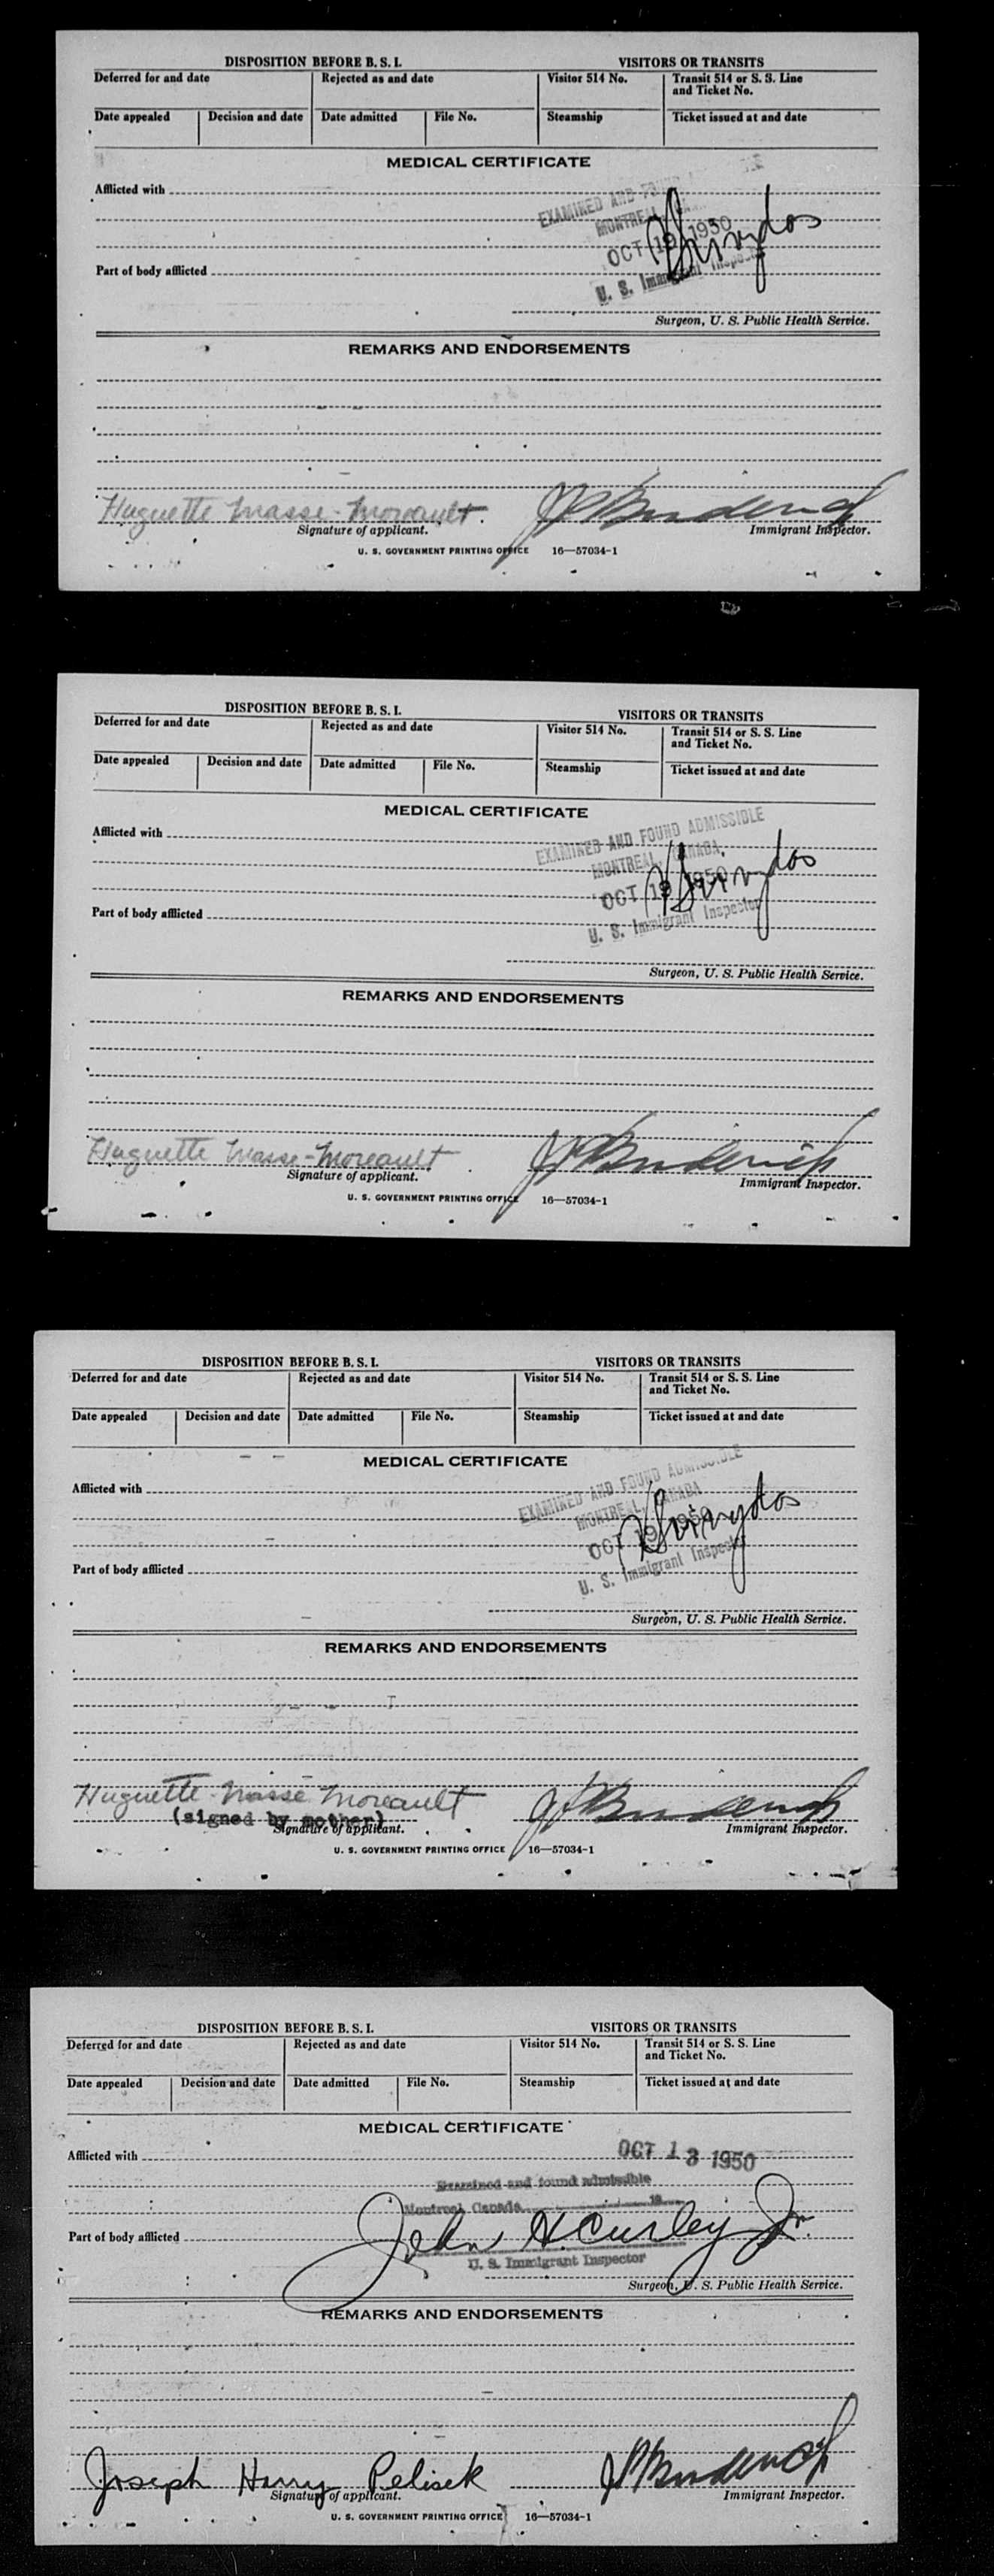 DISPOSITION BEFORE B. S. I. VISITORS OR TRANSITS
Deferred for and date Rejected as and date Visitor 514 No. Transit 514 or S. S. Line
and Ticket No.
Date appealed Decision and date Date admitted File No. Steamship Ticket issued at and date
MEDICAL CERTIFICATE
Afflicted with
EXAMINED AND
MONTREAL
OCT 19 1950
Part of body afflicted
U. S. Immigrant Inspector
Surgeon, U. S. Public Health Service.
REMARKS AND ENDORSEMENTS
Huguette Masse-Moreault.
Signature of applicant. Immigrant Inspector.
U. S. GOVERNMENT PRINTING OFFICE 16—57034-1
DISPOSITION BEFORE B. S. I. VISITORS OR TRANSITS
Deferred for and date Rejected as and date Visitor 514 No. Transit 514 or S. S. Line
and Ticket No.
Date appealed Decision and date Date admitted File No. Steamship Ticket issued at and date
MEDICAL CERTIFICATE
Afflicted with
EXAMINED AND FOUND ADMISSIBLE
MONTREAL, CANADA
OCT 19 1950
Part of body afflicted
U. S. Immigrant Inspector
Surgeon, U. S. Public Health Service.
REMARKS AND ENDORSEMENTS
Huguette Masse-Moreault
Signature of applicant. Immigrant Inspector.
U. S. GOVERNMENT PRINTING OFFICE 16—57034-1
DISPOSITION BEFORE B. S. I. VISITORS OR TRANSITS
Deferred for and date Rejected as and date Visitor 514 No. Transit 514 or S. S. Line
and Ticket No.
Date appealed Decision and date Date admitted File No. Steamship Ticket issued at and date
MEDICAL CERTIFICATE
Afflicted with
EXAMINED AND FOUND ADMISSIBLE
MONTREAL, CANADA
OCT 19 1950
Part of body afflicted
U. S. Immigrant Inspector
Surgeon, U. S. Public Health Service.
REMARKS AND ENDORSEMENTS
Huguette Masse Moreault
(signed by mother)
Signature of applicant. Immigrant Inspector.
U. S. GOVERNMENT PRINTING OFFICE 16—57034-1
DISPOSITION BEFORE B. S. I. VISITORS OR TRANSITS
Deferred for and date Rejected as and date Visitor 514 No. Transit 514 or S. S. Line
and Ticket No.
Date appealed Decision and date Date admitted File No. Steamship Ticket issued at and date
MEDICAL CERTIFICATE
Afflicted with OCT 13 1950
Examined and found admissible
Montreal, Canada 19
Part of body afflicted John H. Curley Jr.
U. S. Immigrant Inspector
Surgeon, U. S. Public Health Service.
REMARKS AND ENDORSEMENTS
Joseph Harry Pelisek
Signature of applicant. Immigrant Inspector.
U. S. GOVERNMENT PRINTING OFFICE 16—57034-1